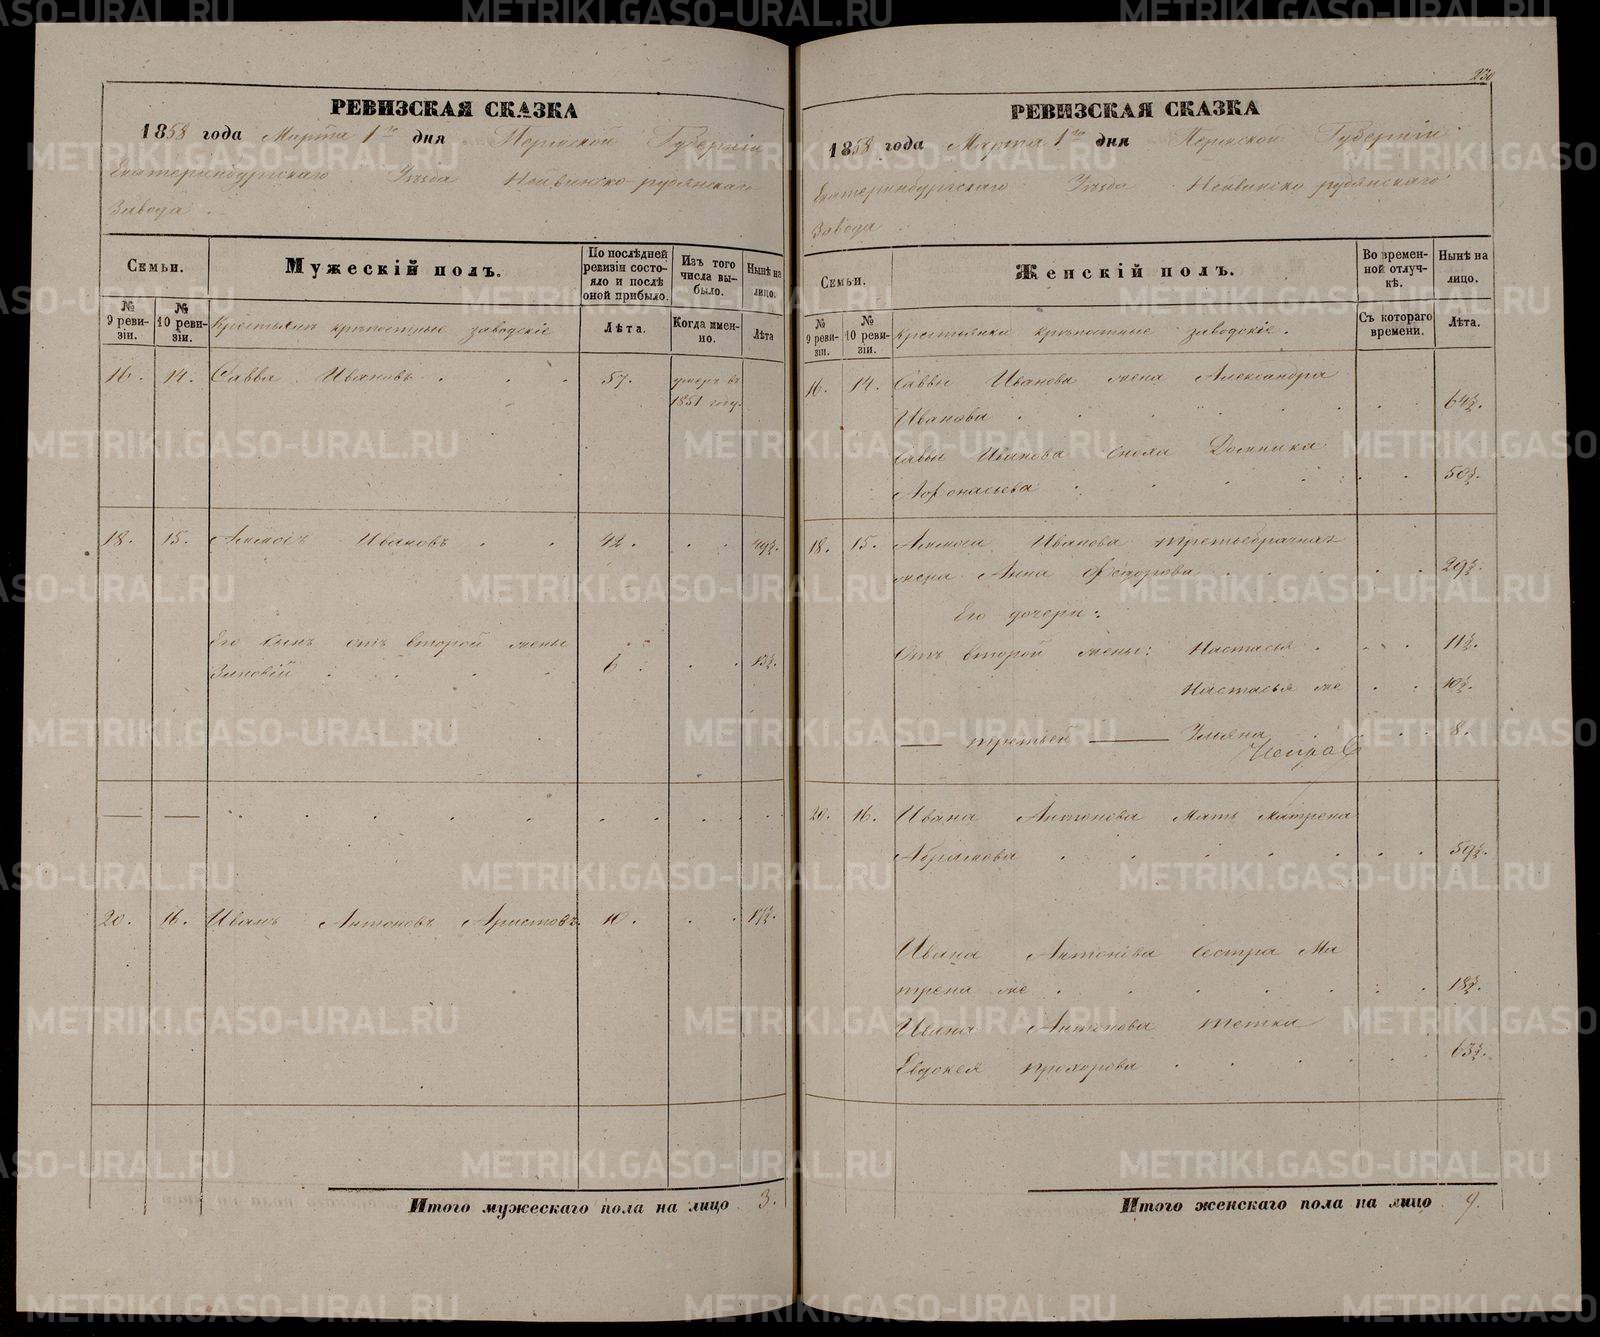 РЕВИЗСКАЯ СКАЗКА
1858 года Марта 1го дня Пермской Губерніи
Екатеринбургскаго Уѣзда Нейвинско-рудянскаго
Завода
Семьи.
Мужескій полъ.
По послѣдней ревизіи состояло и послѣ оной прибыло.
Изъ того числа выбыло.
Нынѣ на лицо.
№ 9 ревизіи.
№ 10 ревизіи.
Крестьяне крѣпостные заводскіе
Лѣта.
Когда именно.
Лѣта
16. 14. Савва Ивановъ . . . 57. умеръ въ
1851 году.
18. 15. Ивановъ . . 42. . . 49½.
Его сынъ отъ второй жены
Зиновій . . . . 6. . . 13½.
20. 16. Иванъ Антоновъ Аристовъ. 10. . . 17½.
Итого мужескаго пола на лицо 3.
230
РЕВИЗСКАЯ СКАЗКА
1858 года Марта 1го дня Пермской Губерніи
Екатеринбургскаго Уѣзда Нейвинско рудянскаго
Завода
Семьи.
Женскій полъ.
Во временной отлучкѣ.
Нынѣ на лицо.
№ 9 ревизіи.
№ 10 ревизіи.
Крестьянки крѣпостные заводскіе.
Съ котораго времени.
Лѣта.
16. 14. Саввы Иванова жена Александра
Иванова . . . 64½.
Саввы Иванова сноха Домника
Афонасьева . . . 50½.
18. 15. Иванова третьебрачная
жена Анна Федорова . . . 29½.
Его дочери:
Отъ второй жены: Настасья . . . 11½.
Настасья же . . 10½.
— третьей — . . 8.
20. 16. Ивана Антонова мать Матрена
Абрамова . . . 59½.
Ивана Антонова сестра Ма
трена же . . . 18½.
Ивана Антонова тетка
Евдокея Прохорова . . . 63½.
Итого женскаго пола на лицо 9.
METRIKI.GASO-URAL.RU